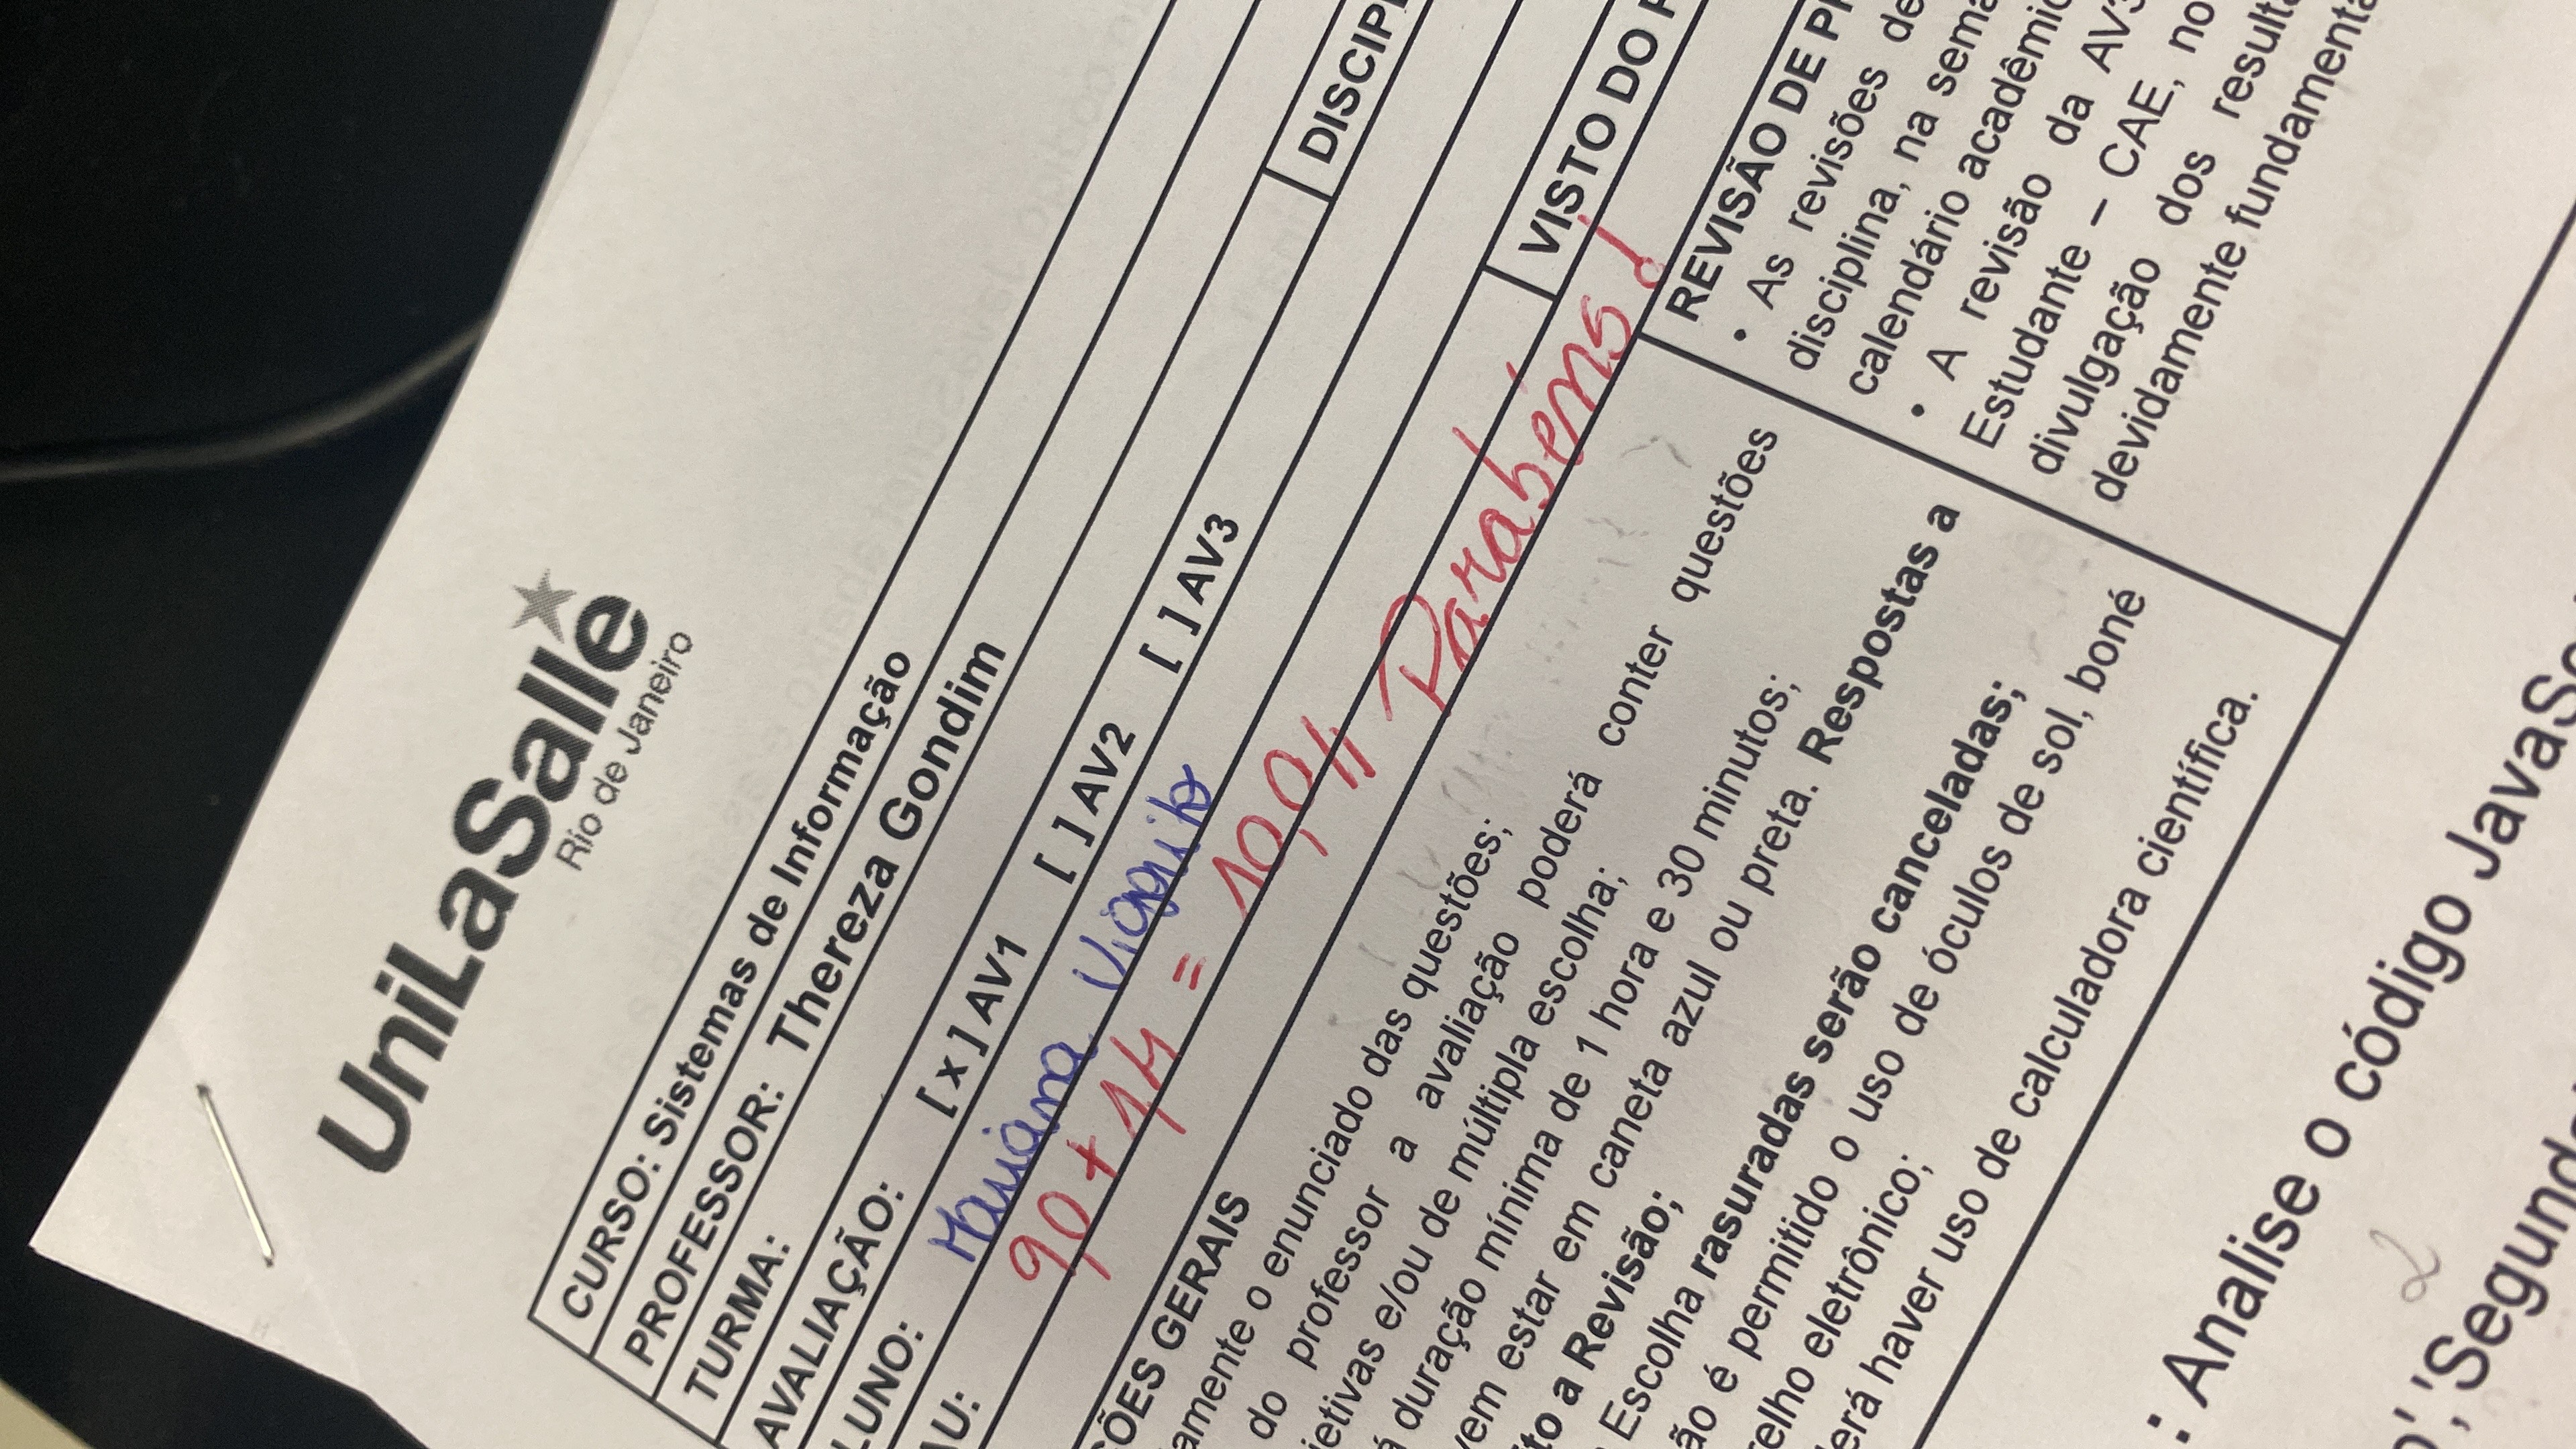 UniLaSalle
Rio de Janeiro
CURSO: Sistemas de Informação
PROFESSOR: Thereza Gondim
TURMA:
DISCIPL
AVALIAÇÃO: [ x ] AV1 [ ] AV2 [ ] AV3
LUNO: Mariana
VISTO DO P
AU: 9,0 + 1,4 = 10,0// Parabéns!
ÇÕES GERAIS
amente o enunciado das questões;
do professor a avaliação poderá conter questões
jetivas e/ou de múltipla escolha;
á duração mínima de 1 hora e 30 minutos;
vem estar em caneta azul ou preta. Respostas a
ito a Revisão;
Escolha rasuradas serão canceladas;
ão é permitido o uso de óculos de sol, boné
relho eletrônico;
erá haver uso de calculadora científica.
REVISÃO DE PR
• As revisões de
disciplina, na sema
calendário acadêmic
• A revisão da AV3
Estudante – CAE, no
divulgação dos result
devidamente fundamenta
: Analise o código JavaSc
2
o','Segund